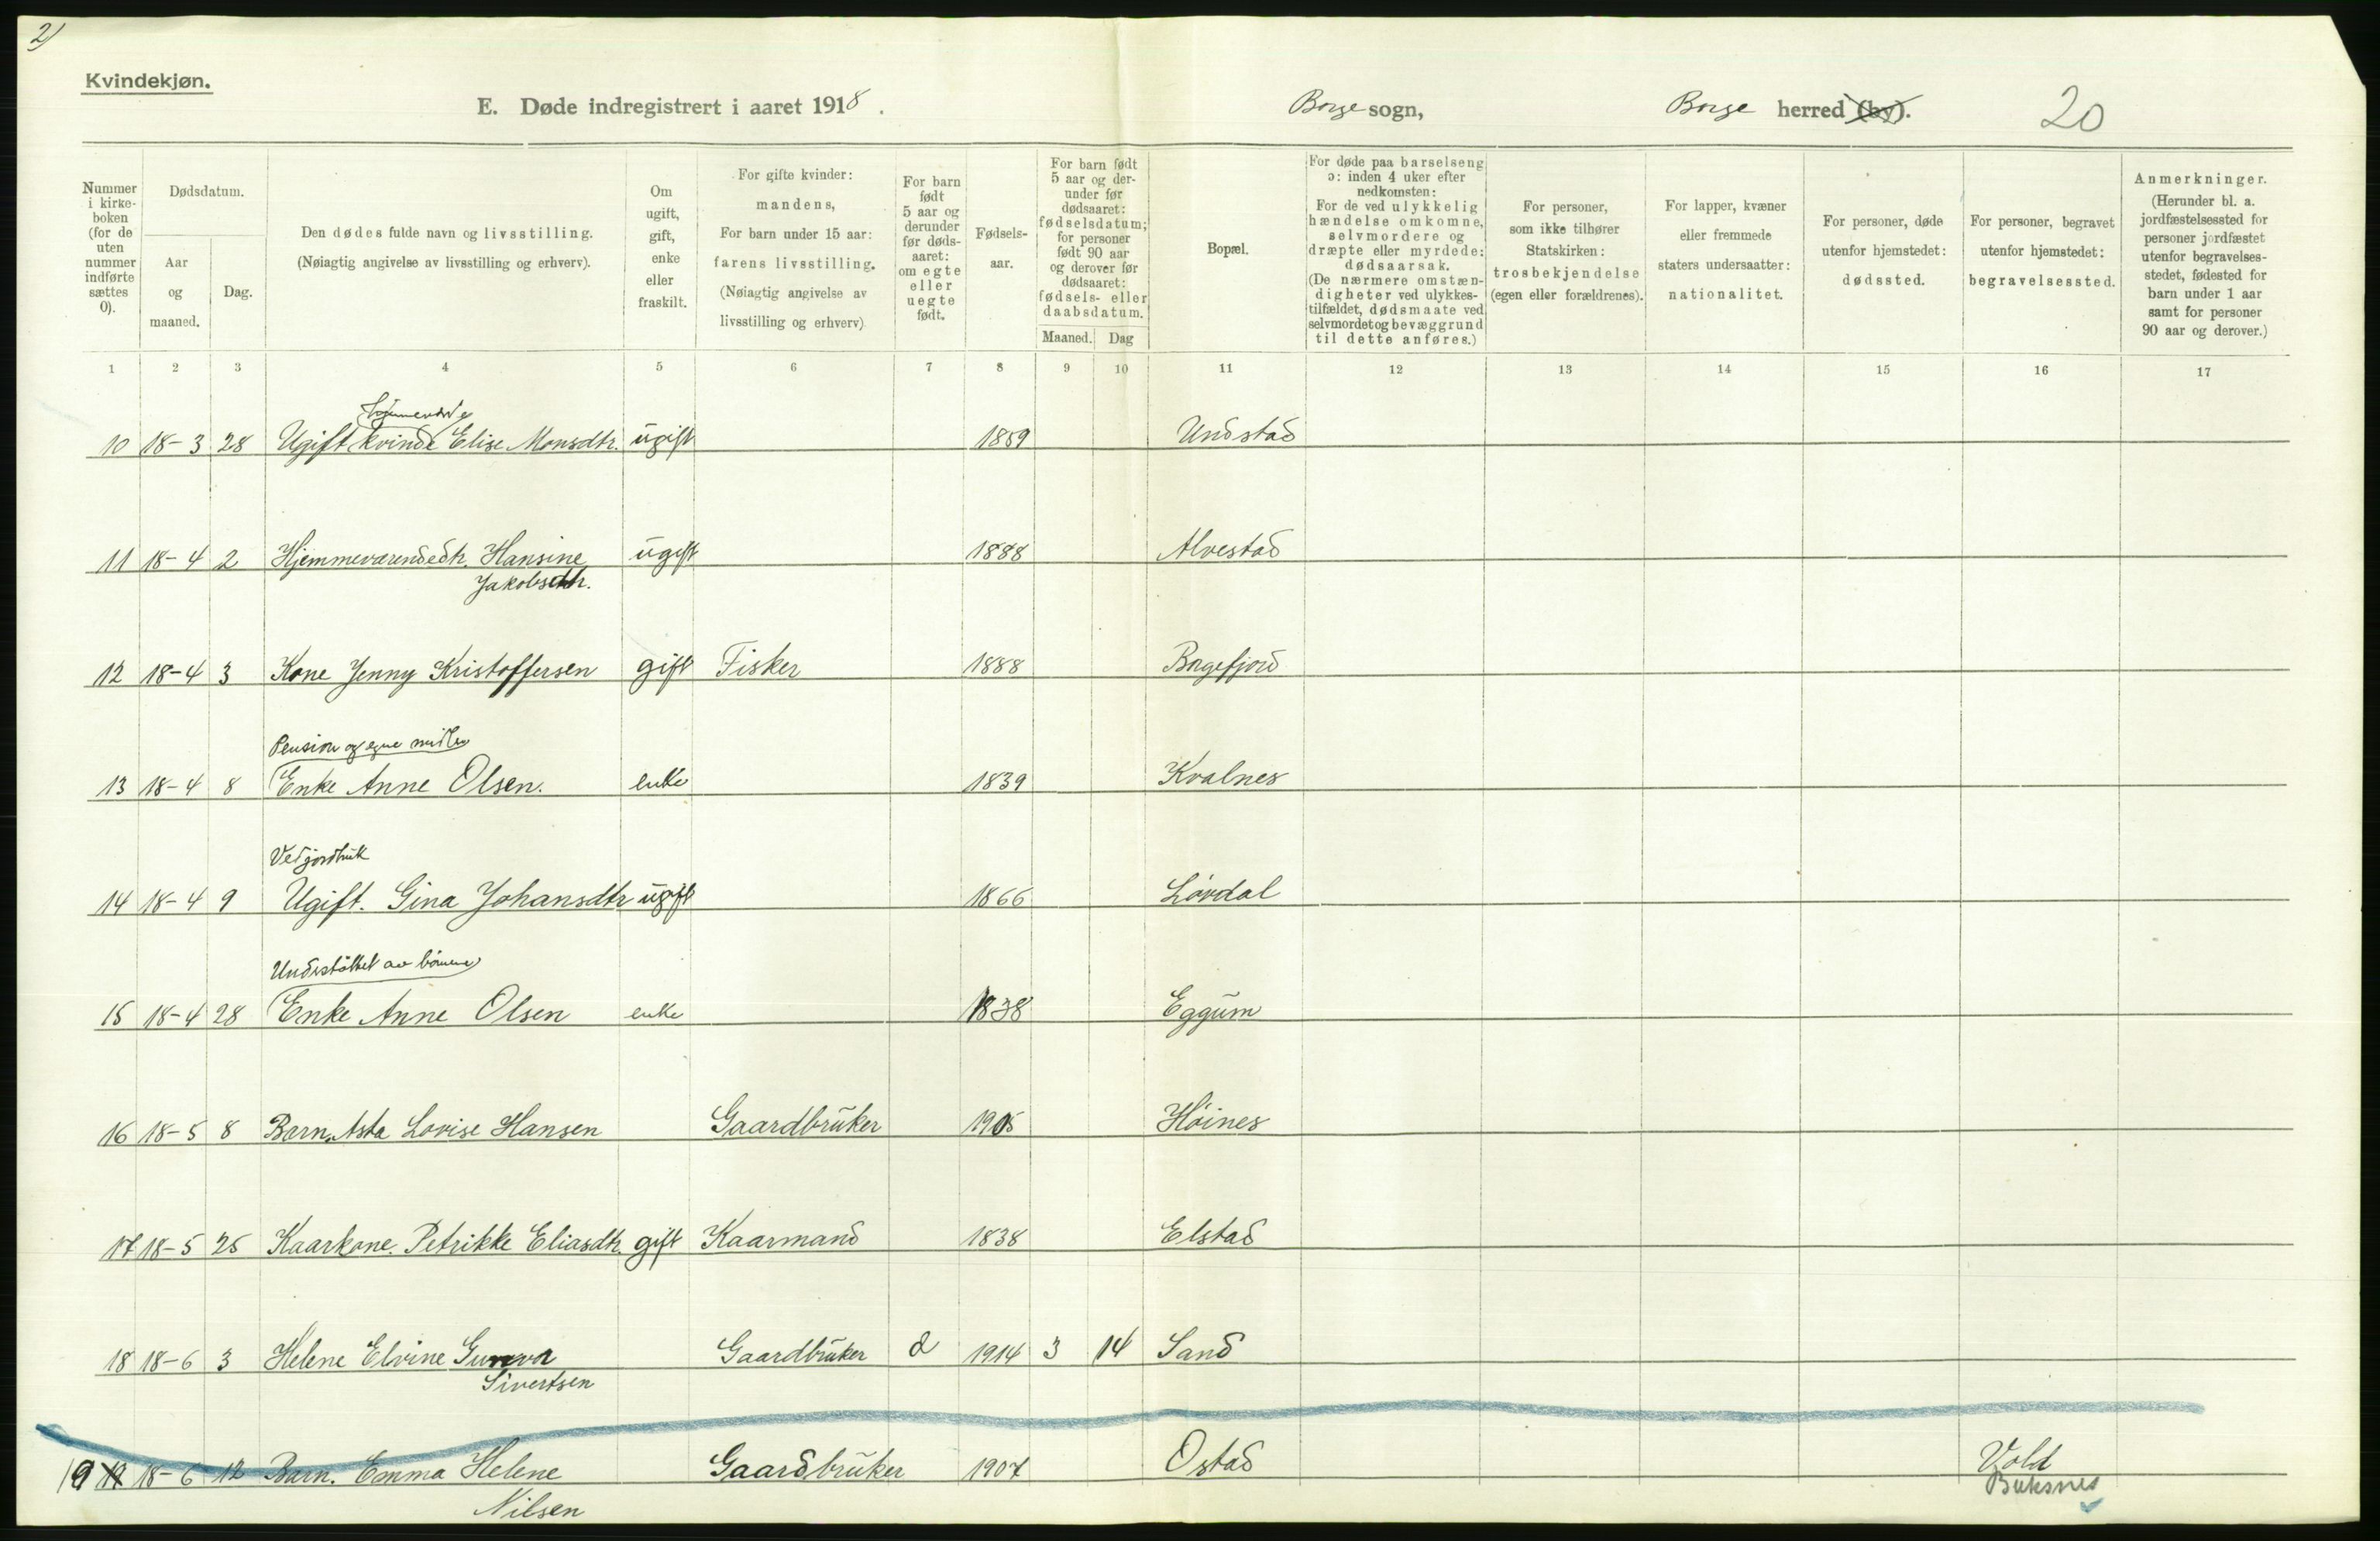 2)
Kvindekjøn.
E. Døde indregistrert i aaret 1918.
Borge sogn,
Borge herred (by).
20
Nummer i kirkeboken (for de uten nummer indførte sættes 0).
Dødsdatum.
Aar og maaned.
Dag.
Den dødes fulde navn og livsstilling.
(Nøiagtig angivelse av livsstilling og erhverv).
Om ugift, gift, enke eller fraskilt.
For gifte kvinder:
mandens,
For barn under 15 aar:
farens livsstilling.
(Nøiagtig angivelse av
livsstilling og erhverv)
For barn født 5 aar og derunder før dødsaaret: om egte eller uegte født.
Fødselsaar.
For barn født 5 aar og derunder før dødsaaret: fødselsdatum; for personer født 90 aar og derover før dødsaaret: fødsels- eller daabsdatum.
Maaned.
Dag
Bopæl.
For døde paa barselseng ɔ: inden 4 uker efter nedkomsten:
For de ved ulykkelig hændelse omkomne, selvmordere og dræpte eller myrdede: dødsaarsak.
(De nærmere omstændigheter ved ulykkestilfældet, dødsmaate ved selvmordet og bevæggrund til dette anføres.)
For personer, som ikke tilhører Statskirken: trosbekjendelse (egen eller forældrenes).
For lapper, kvæner eller fremmede staters undersaatter: nationalitet.
For personer, døde utenfor hjemstedet: dødssted.
For personer, begravet utenfor hjemstedet: begravelsessted.
Anmerkninger.
(Herunder bl. a. jordfæstelsessted for personer jordfæstet utenfor begravelsesstedet, fødested for barn under 1 aar samt for personer 90 aar og derover.)
1 2 3 4 5 6 7 8 9 10 11 12 13 14 15 16 17
10 18-3 28 Ugift kvinde Elise Monsdtr. ugift 1859 Undstad
11 18-4 2 Hjemmeværendedtr. Hansine ugift 1888 Alvestad
Jakobsdtr.
12 18-4 3 Kone Jenny Kristoffersen gift Fisker 1888 Borgefjord
Pension og egne midler
13 18-4 8 Enke Anne Olsen. enke 1839 Kvalnes
Ved jordbruk
14 18-4 9 Ugift. Gina Johansdtr ugift 1866 Lövdal
Understöttet av börnene
15 18-4 28 Enke Anne Olsen enke 1838 Eggum
16 18-5 8 Barn. Asta Lovise Hansen Gaardbruker 1905 Höines
17 18-5 25 Kaarkone. Petrikke Eliasdtr. gift Kaarmand 1838 Elstad
18 18-6 3 Helene Elvine Gunva Gaardbruker 1914 3 14 Sand
Sivertsen
19 18-6 12 Barn. Emma Helene Gaardbruker 1907 Ostad Vold
Nilsen Buksnes